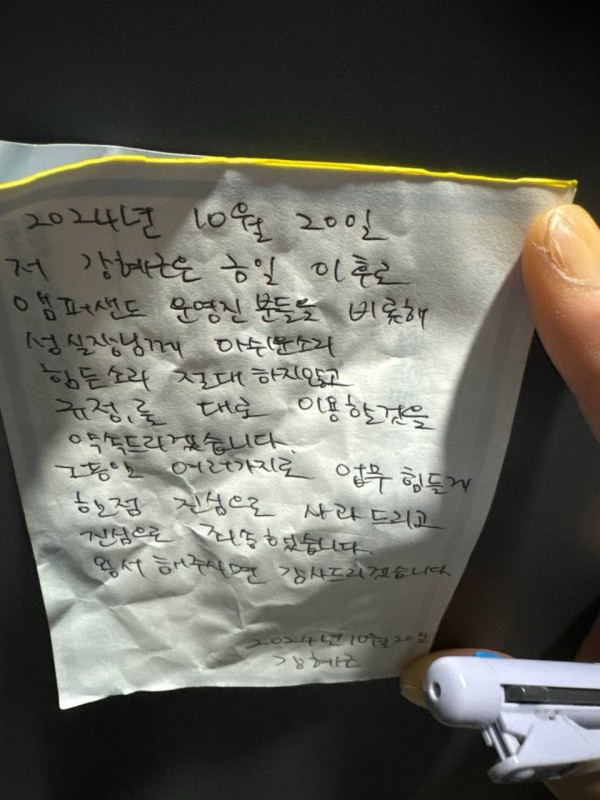 2024년 10월 20일
저 강혜근은 금일 이후로
앰퍼샌드 운영진 분들을 비롯해
성실장님께 아쉬운소리
힘든소리 절대 하지않고
규정,룰 대로 이용할것을
약속드리겠습니다.
그동안 여러가지로 업무 힘들게
한점 진심으로 사과 드리고
진심으로 죄송했습니다
용서 해주시면 감사드리겠습니다
2024년 10월 20일
강혜근